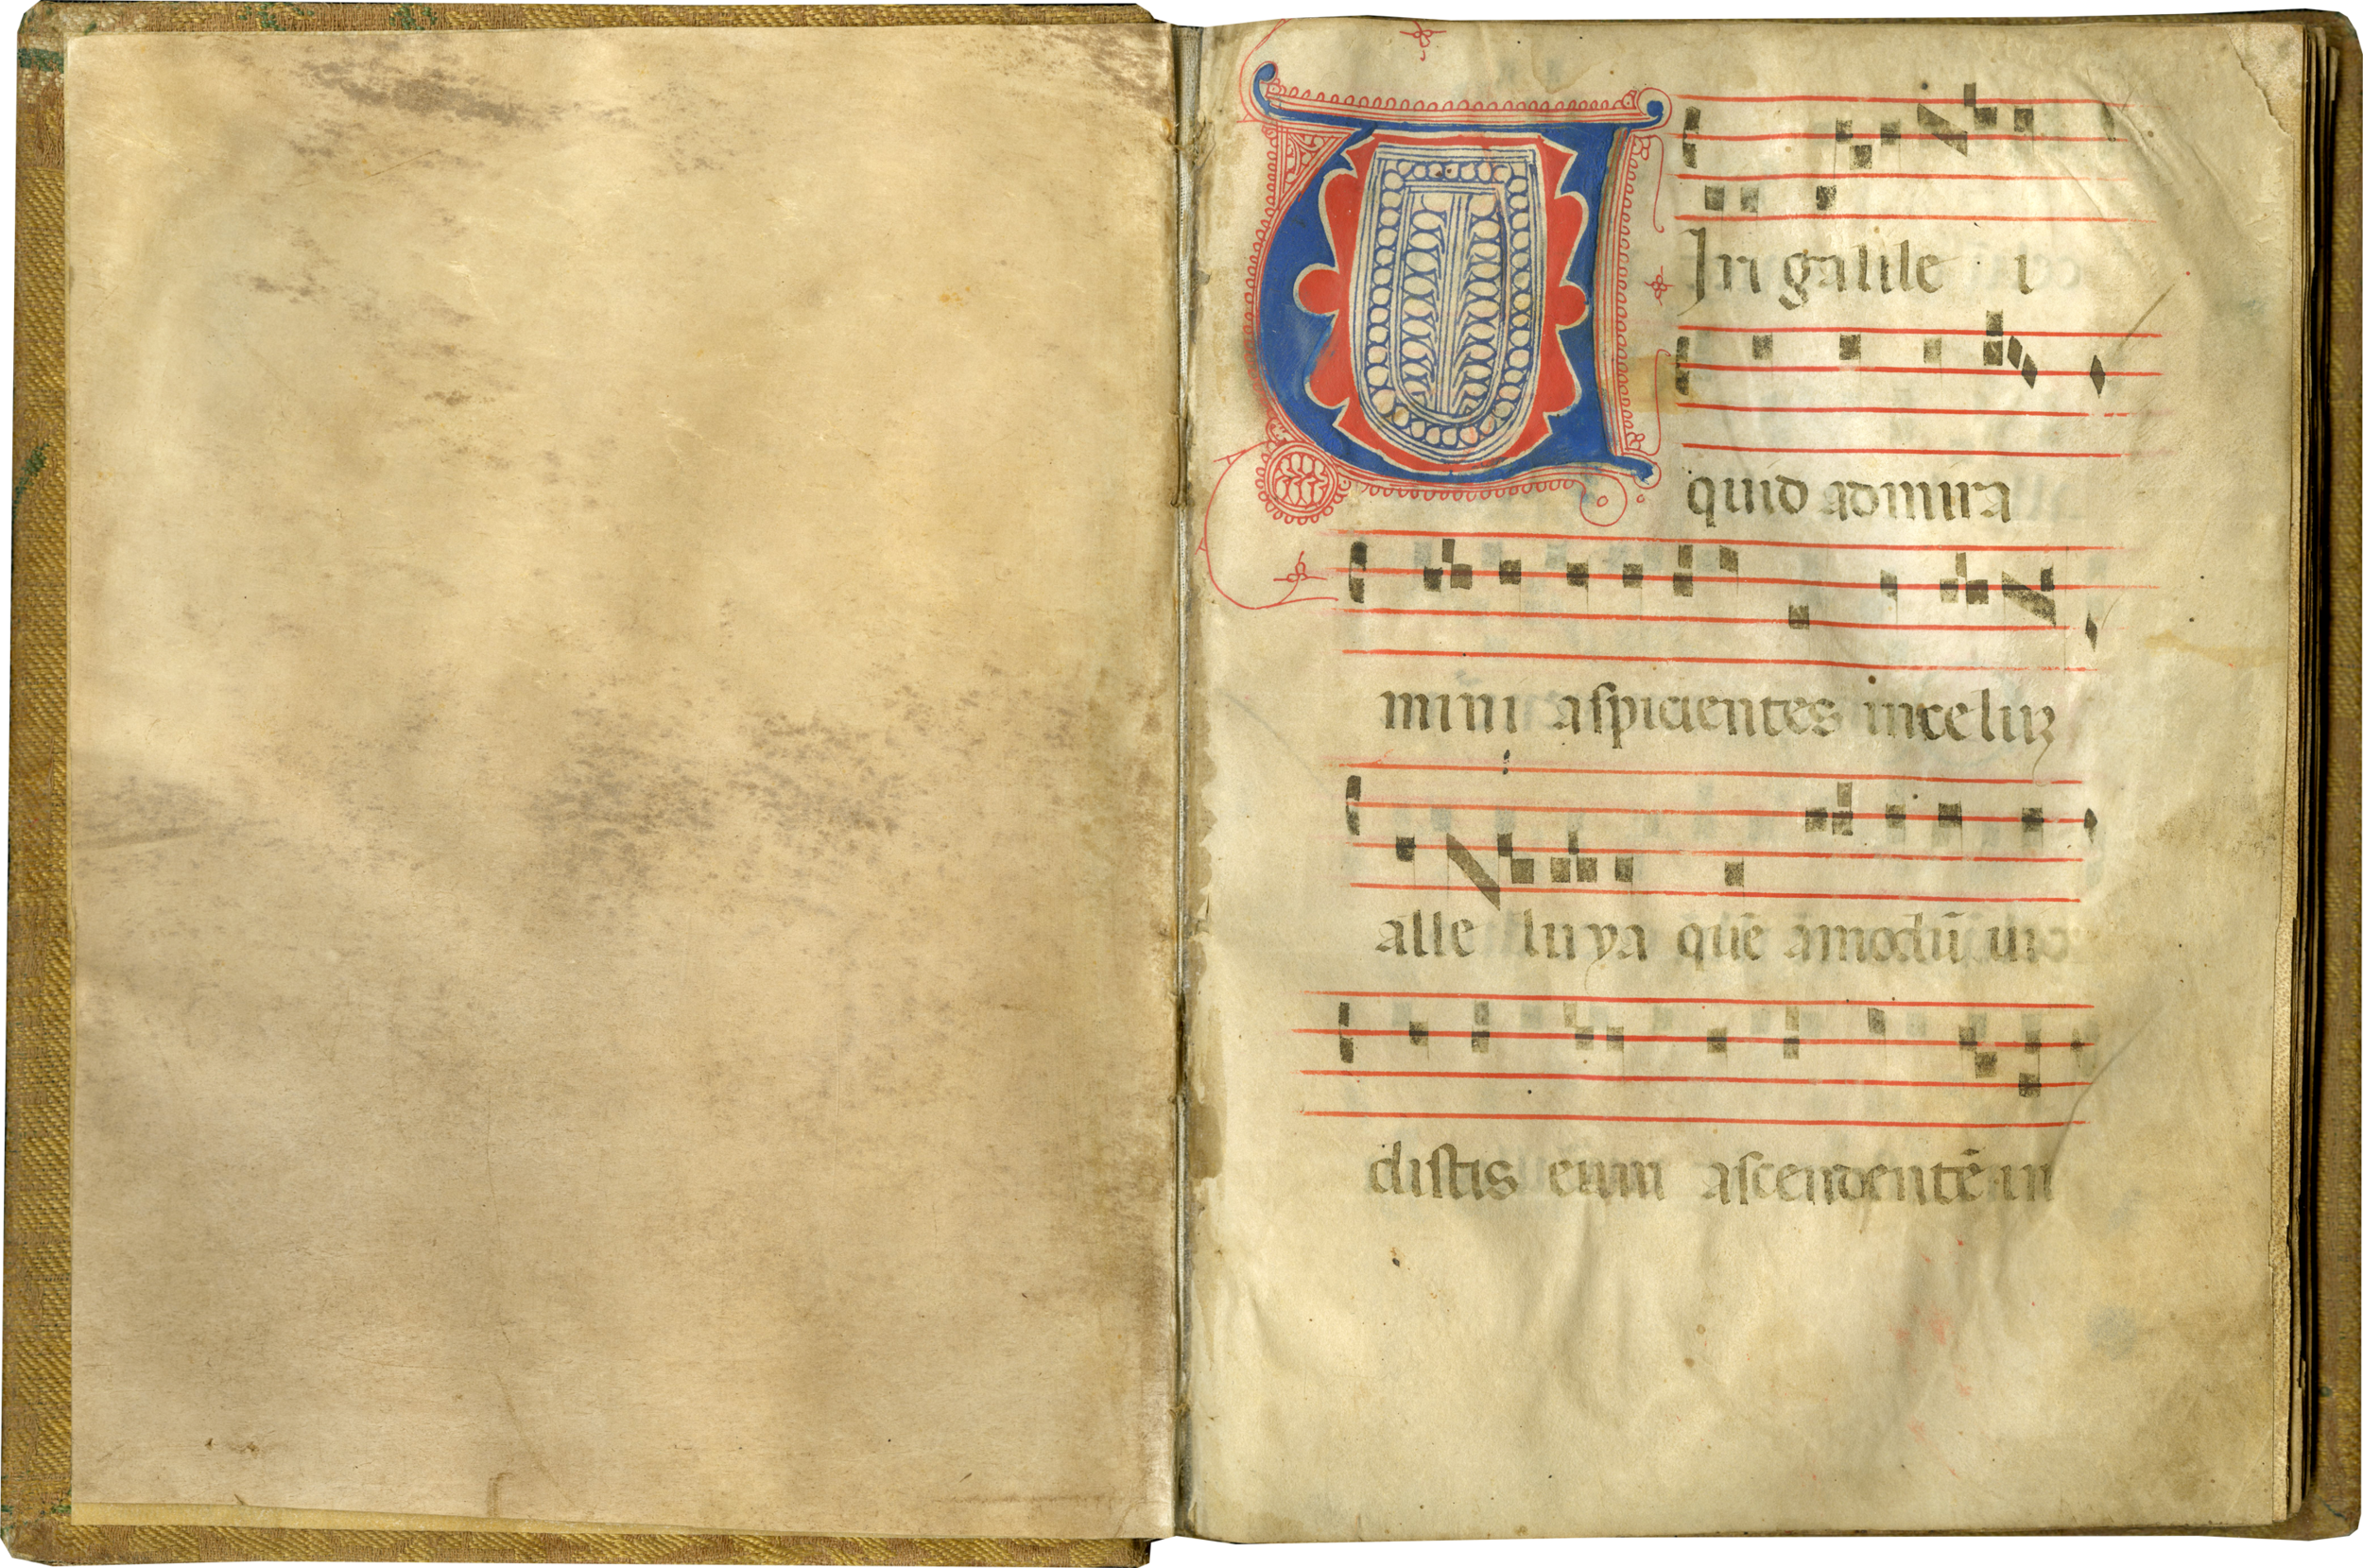 UIri galile i
quid admira
mini aſpicientes inceluꝫ
alle luya quē amodū uio
diſtis eum aſcendentē in